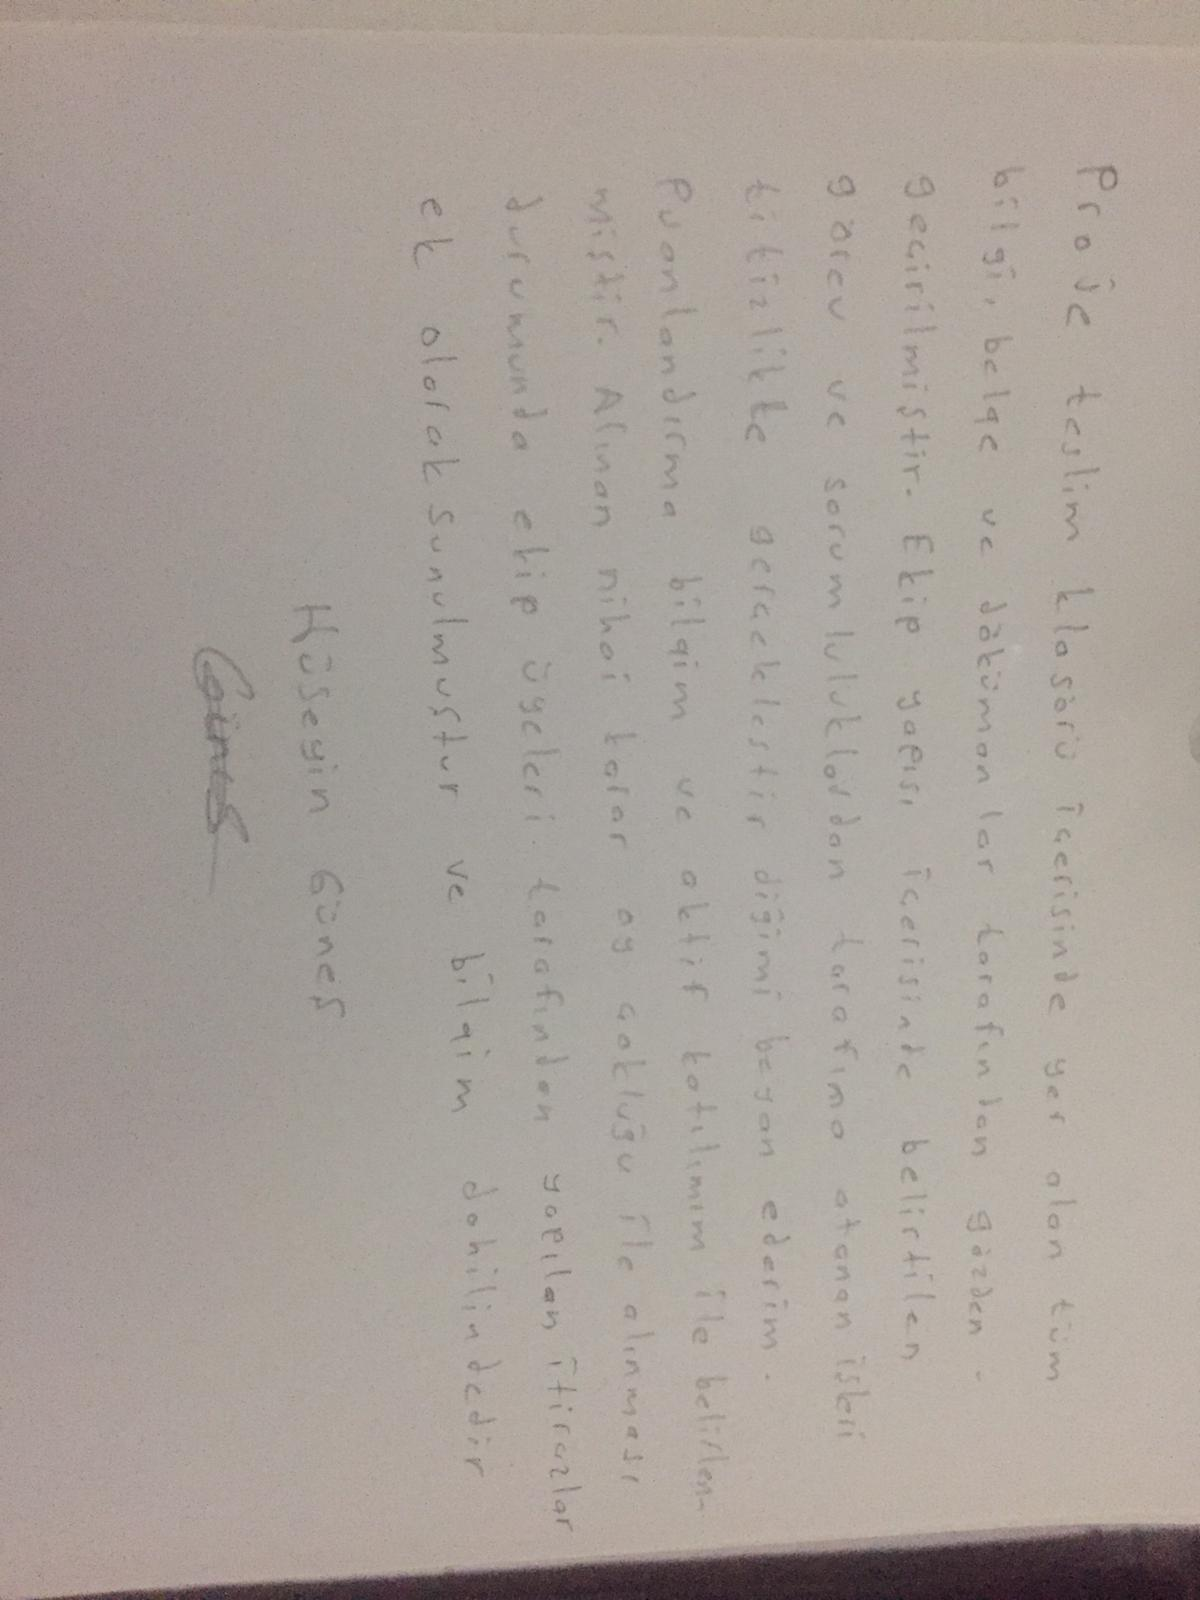 Proje teslim klasörü içerisinde yer alan tüm
bilgi, belge ve dökümanlar tarafından gözden
geçirilmiştir. Ekip yapısı içerisinde belirtilen
görev ve sorumluluklardan tarafıma atanan işleri
titizlikte gerçekleştirdiğimi beyan ederim.
Puanlandırma bilgim ve aktif katılımım ile belirlen-
miştir. Alınan nihai karar oy çokluğu ile alınması
durumunda ekip üyeleri tarafından yapılan itirazlar
ek olarak sunulmuştur ve bilgim dahilindedir
Hüseyin Güneş
Güneş